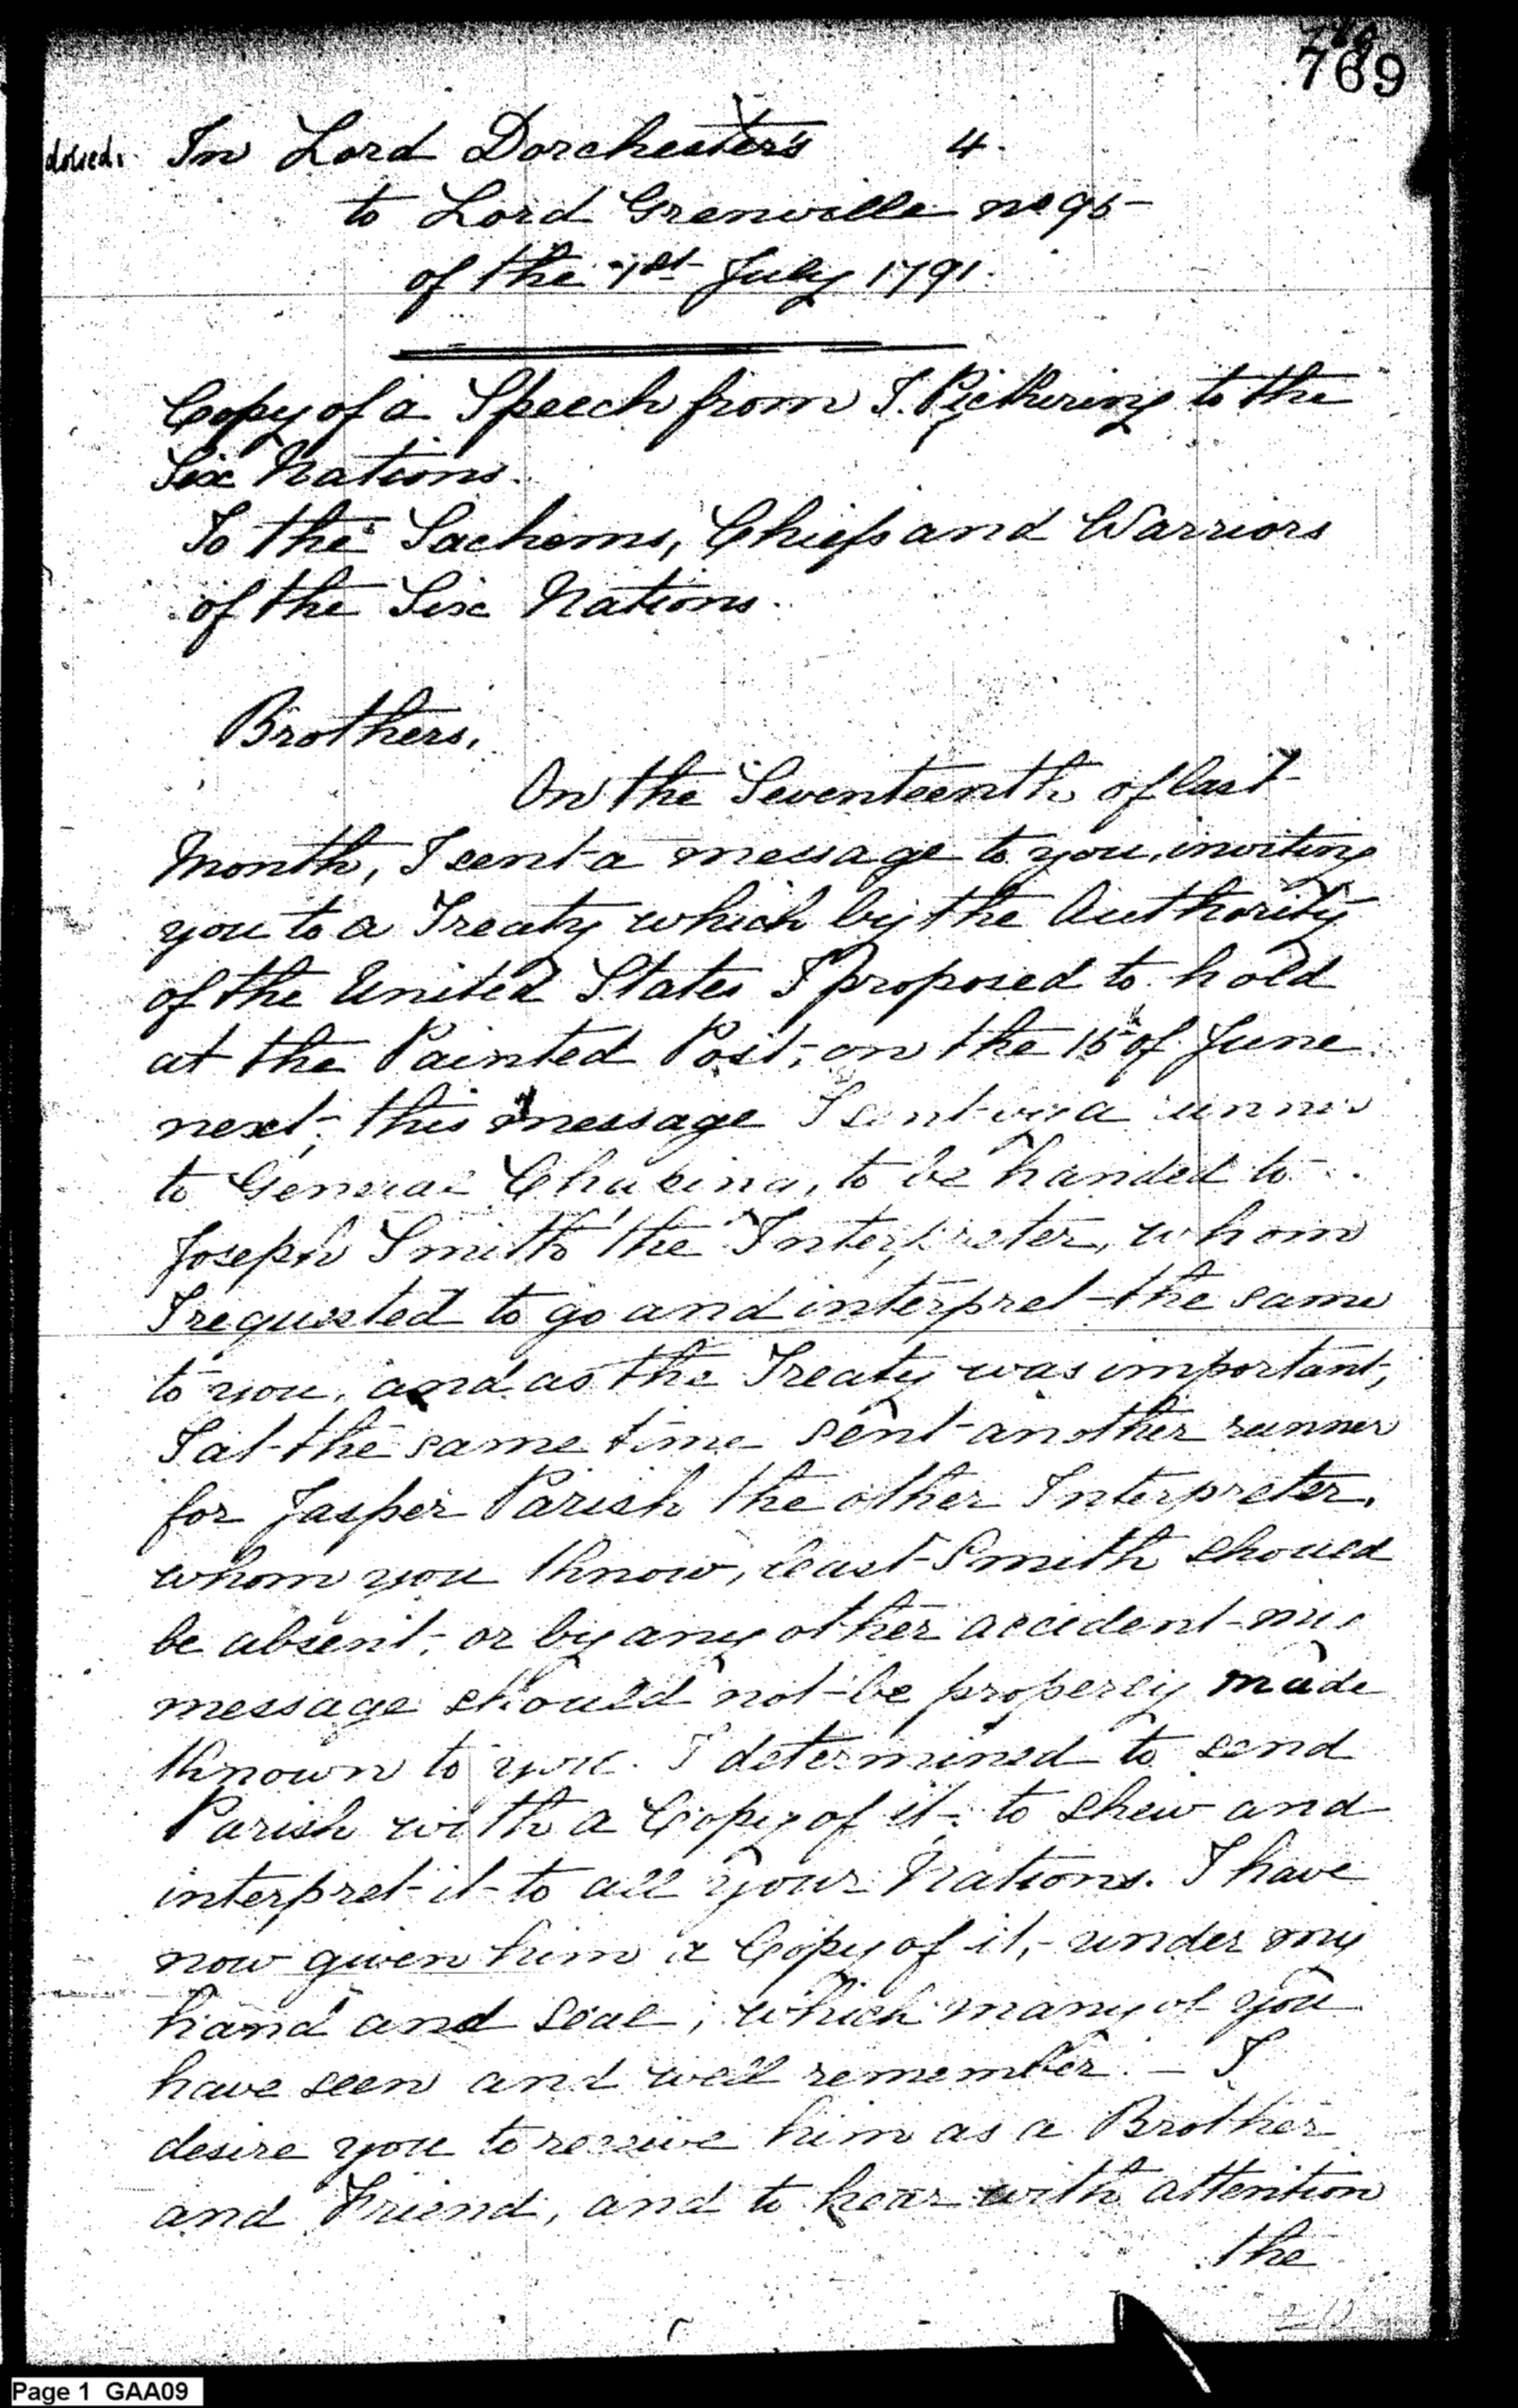 769
In Lord Dorchester's 4.
to Lord Grenville no 95
of the 1st July 1791.
Copy of a Speech from T. Pickering to the
Six Nations.
To the Sachems, Chiefs and Warriors
of the Six Nations.
Brothers,
On the Seventeenth of last
Month, I sent a message to you, inviting
you to a Treaty which by the Authority
of the United States I proposed to hold
at the Painted Post, on the 15th of June
next; this message I sent via a runner
to General Chapina, to be handed to
Joseph Smith the Interpreter, whom
I requested to go and interpret the same
to you, and as the Treaty was important,
I at the same time sent another runner
for Jasper Parish the other Interpreter,
whom you know, least Smith should
be absent, or by any other accident my
message should not be properly made
known to you. I determined to send
Parish with a Copy of it, to shew and
interpret it to all your Nations. I have
now given him a Copy of it, under my
hand and seal, which many of you
have seen and well remember. — I
desire you to receive him as a Brother
and Friend, and to hear with attention
the
Page 1 GAA09